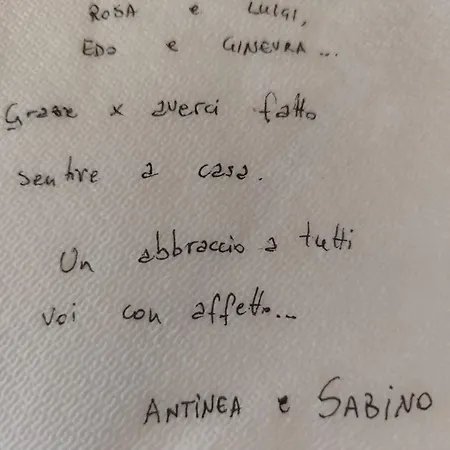 ROSA e LUIGI,
EDO e GINEVRA...
Grazie x averci fatto
sentire a casa.
Un abbraccio a tutti
voi con affetto...
ANTINEA e SABINO